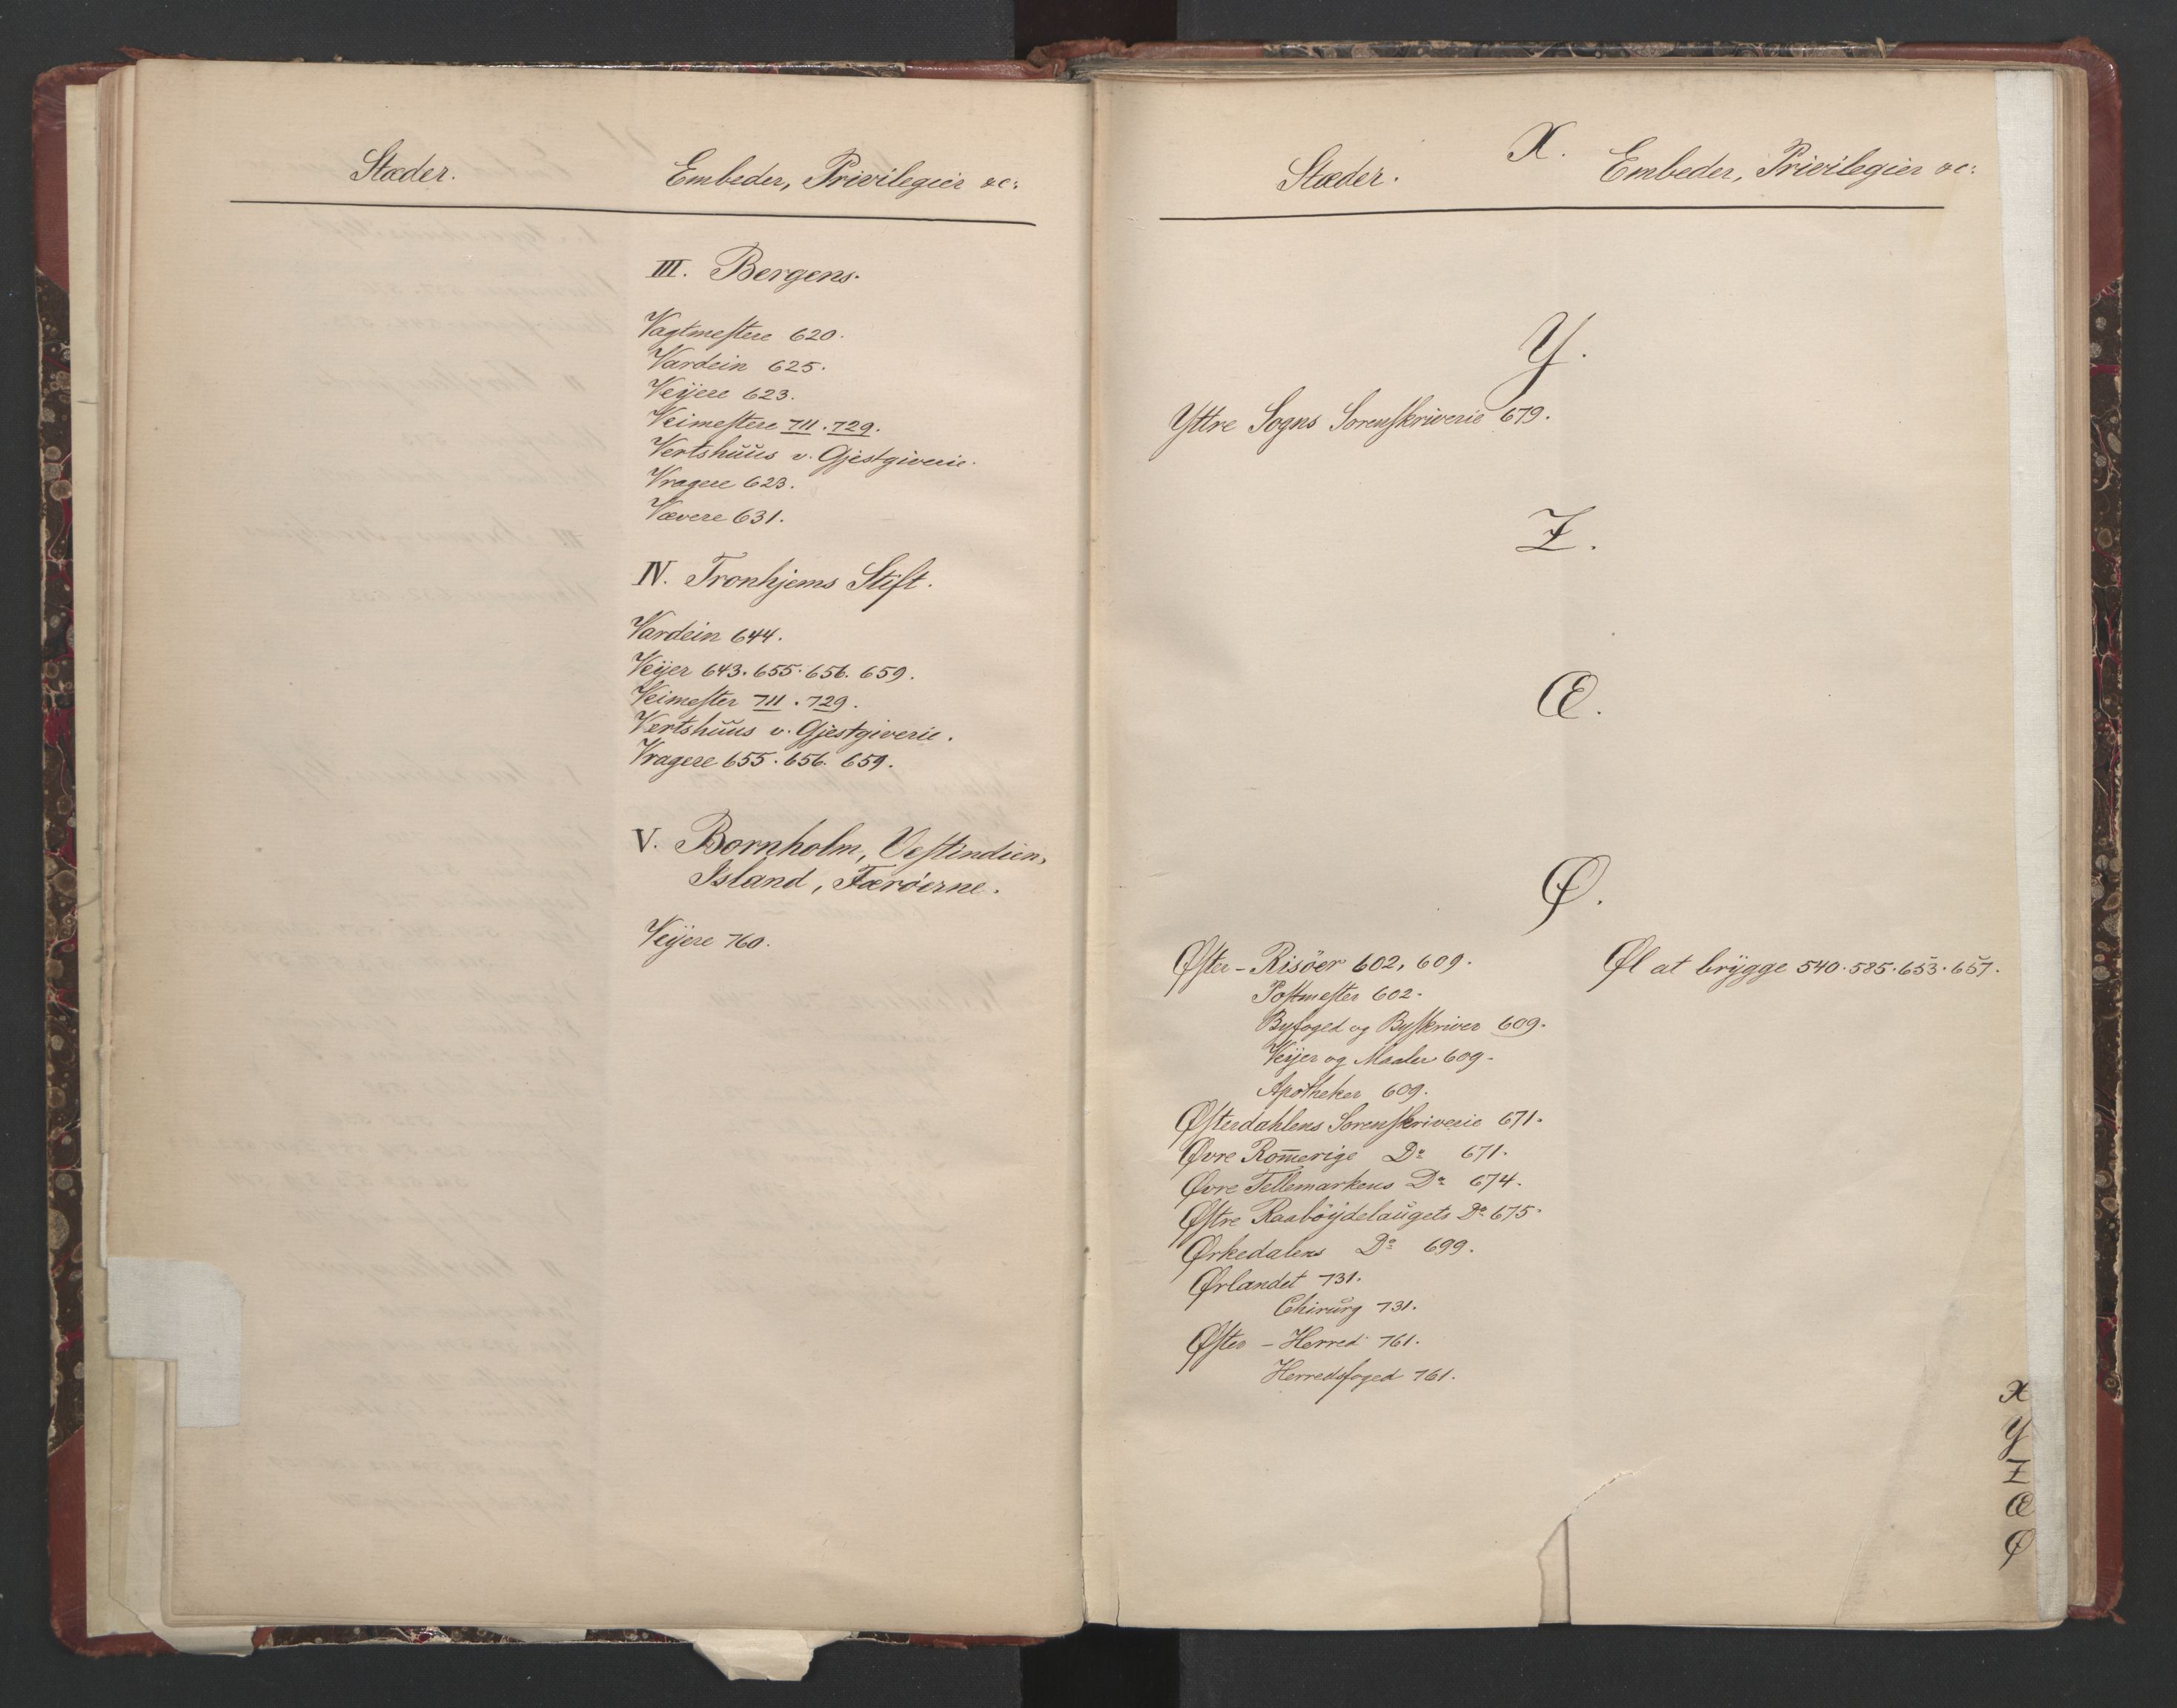 Stæder.
Embeder, Privilegier &c:
III. Bergens.
Vagtmestere 620.
Vardein 625.
Veÿere 623.
Veimestere 711. 729.
Vertshuus v. Gjestgiverie.
Vragere 623.
Vævere 631.
IV. Tronhjems Stift.
Vardein 644.
Veÿer 643. 655. 656. 659.
Veimester 711. 729.
Vertshuus v. Gjestgiverie.
Vragere 655. 656. 659.
V. Bornholm, Vestindien,
Island, Færöerne.
Veÿere 760.
X.
Stæder.
Embeder, Privilegier &c:
Y.
Yttre Sogns Sorenskriverie 679.
Z.
Æ.
Ø.
Øster-Risöer 602, 609.
Postmester 602.
Byfoged og Byskriver 609.
Veÿer og Maaler 609.
Apotheker 609.
Østerdahlens Sorenskriverie 671.
Øvre Rom̅erige Do 671.
Øvre Tellemarkens Do 674.
Østre Raaböÿdelaugets Do 675.
Ørkedalens Do 699.
Ørlandet 731.
Chirurg 731.
Øster-Herred 761.
Herredsfoged 761.
Øl at brÿgge 540. 585. 653. 657.
X
Y
Z
Æ
Ø